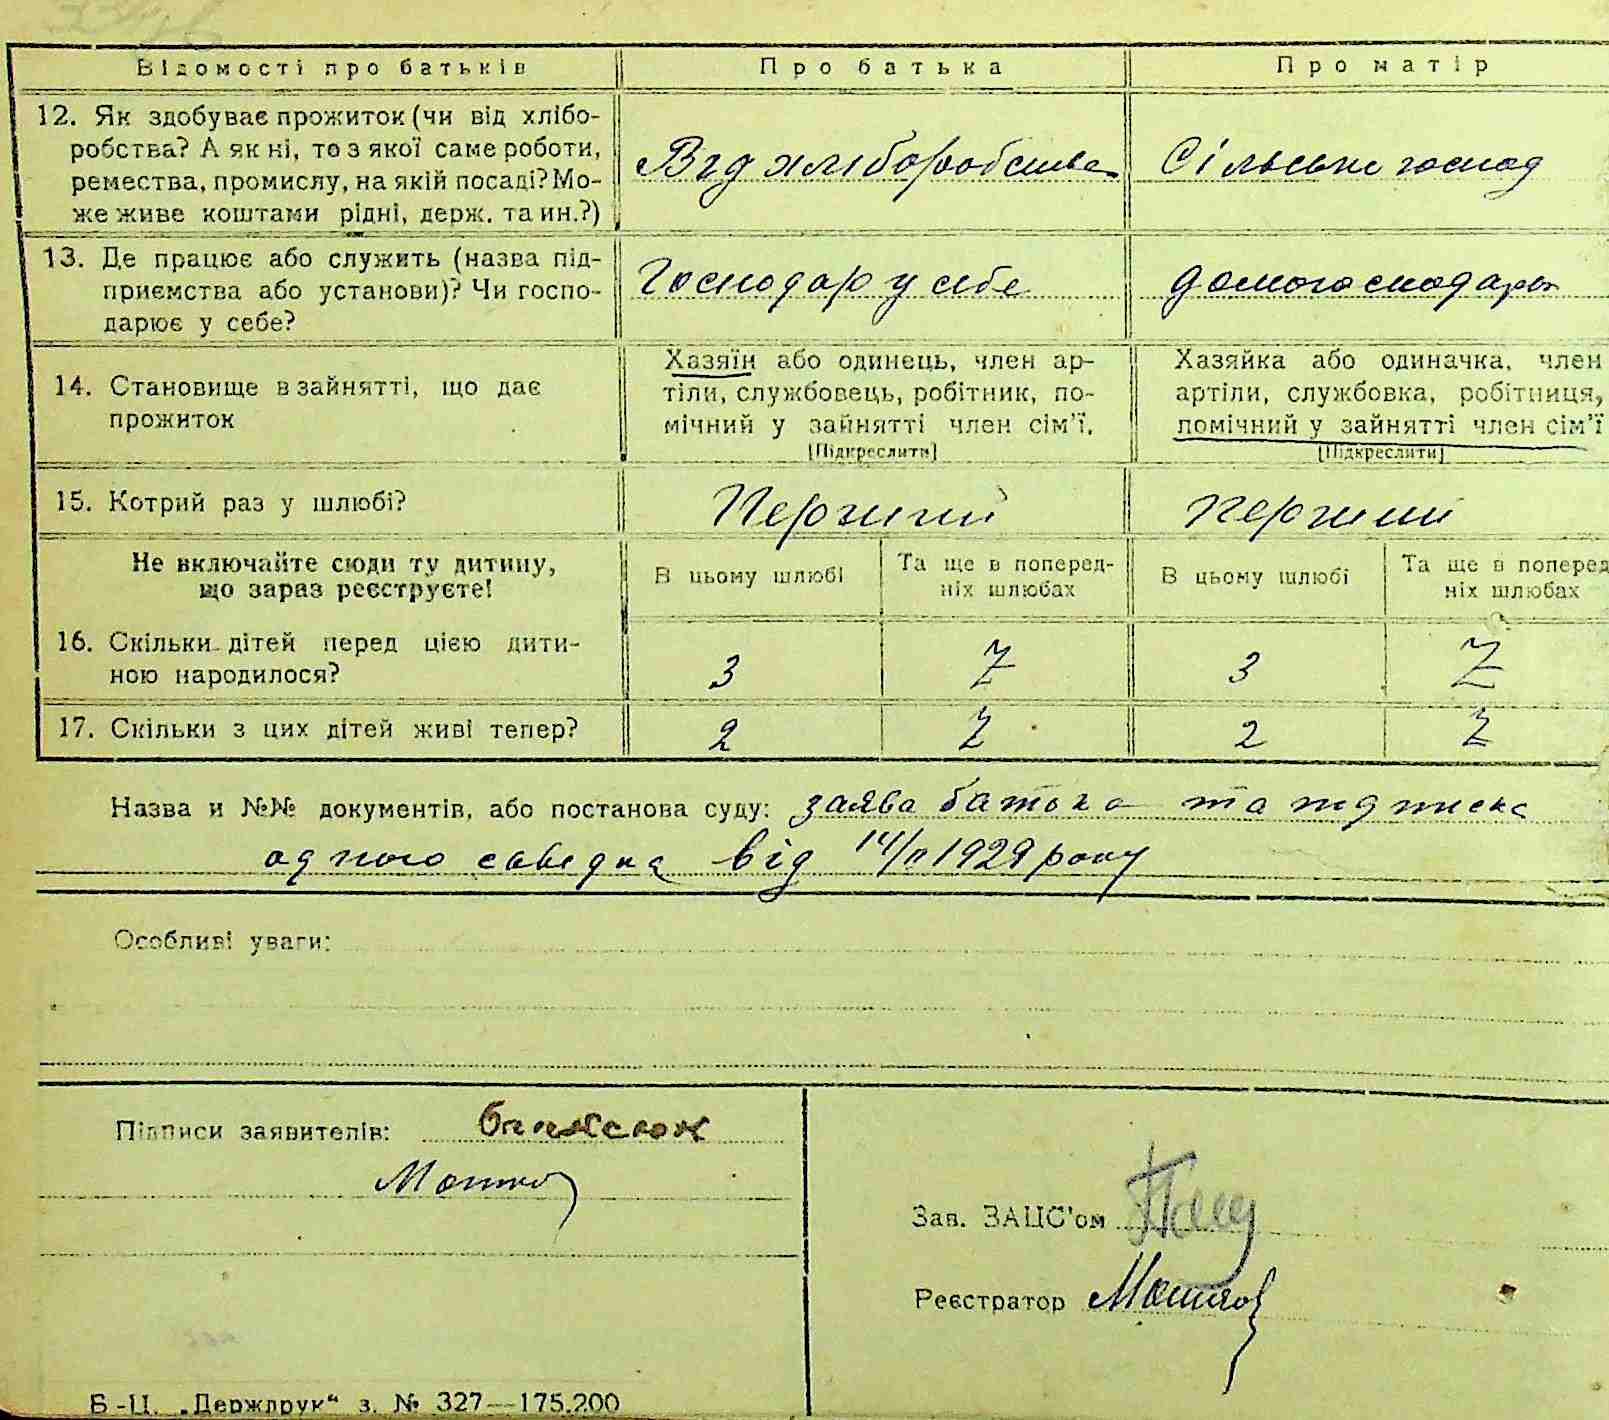 Відомості про батьків Про батька Про матір
12. Як здобуває прожиток (чи від хлібо-
робства? А як ні, то з якої саме роботи,
ремества, промислу, на якій посаді? Мо-
же живе коштами рідні, держ. та ин.?)
Від хліборобства Сільське господ
13. Де працює або служить (назва під-
приємства або установи)? Чи госпо-
дарює у себе?
Господар у себе домогосподарк
14. Становище в зайнятті, що дає
прожиток
Хазяїн або одинець, член ар-
тіли, службовець, робітник, по-
мічний у зайнятті член сім'ї.
[Підкреслити]
Хазяйка або одиначка, член
артіли, службовка, робітниця,
помічний у зайнятті член сім'ї
[Підкреслити]
15. Котрий раз у шлюбі? Перший перший
Не включайте сюди ту дитину,
що зараз реєструєте!
В цьому шлюбі
Та ще в поперед-
ніх шлюбах
В цьому шлюбі
Та ще в поперед
ніх шлюбах
16. Скільки дітей перед цією дити-
ною народилося?
3 Z 3 Z
17. Скільки з цих дітей живі тепер? 2 Z 2 Z
Назва и №№ документів, або постанова суду: заява батька та підписка
одного свідка від 14/II 1929 року
Особливі уваги:
Підписи заявителів:
Зав. ЗАЦС'ом
Реєстратор
Б-Ц. „Держдрук“ з. № 327—175.200